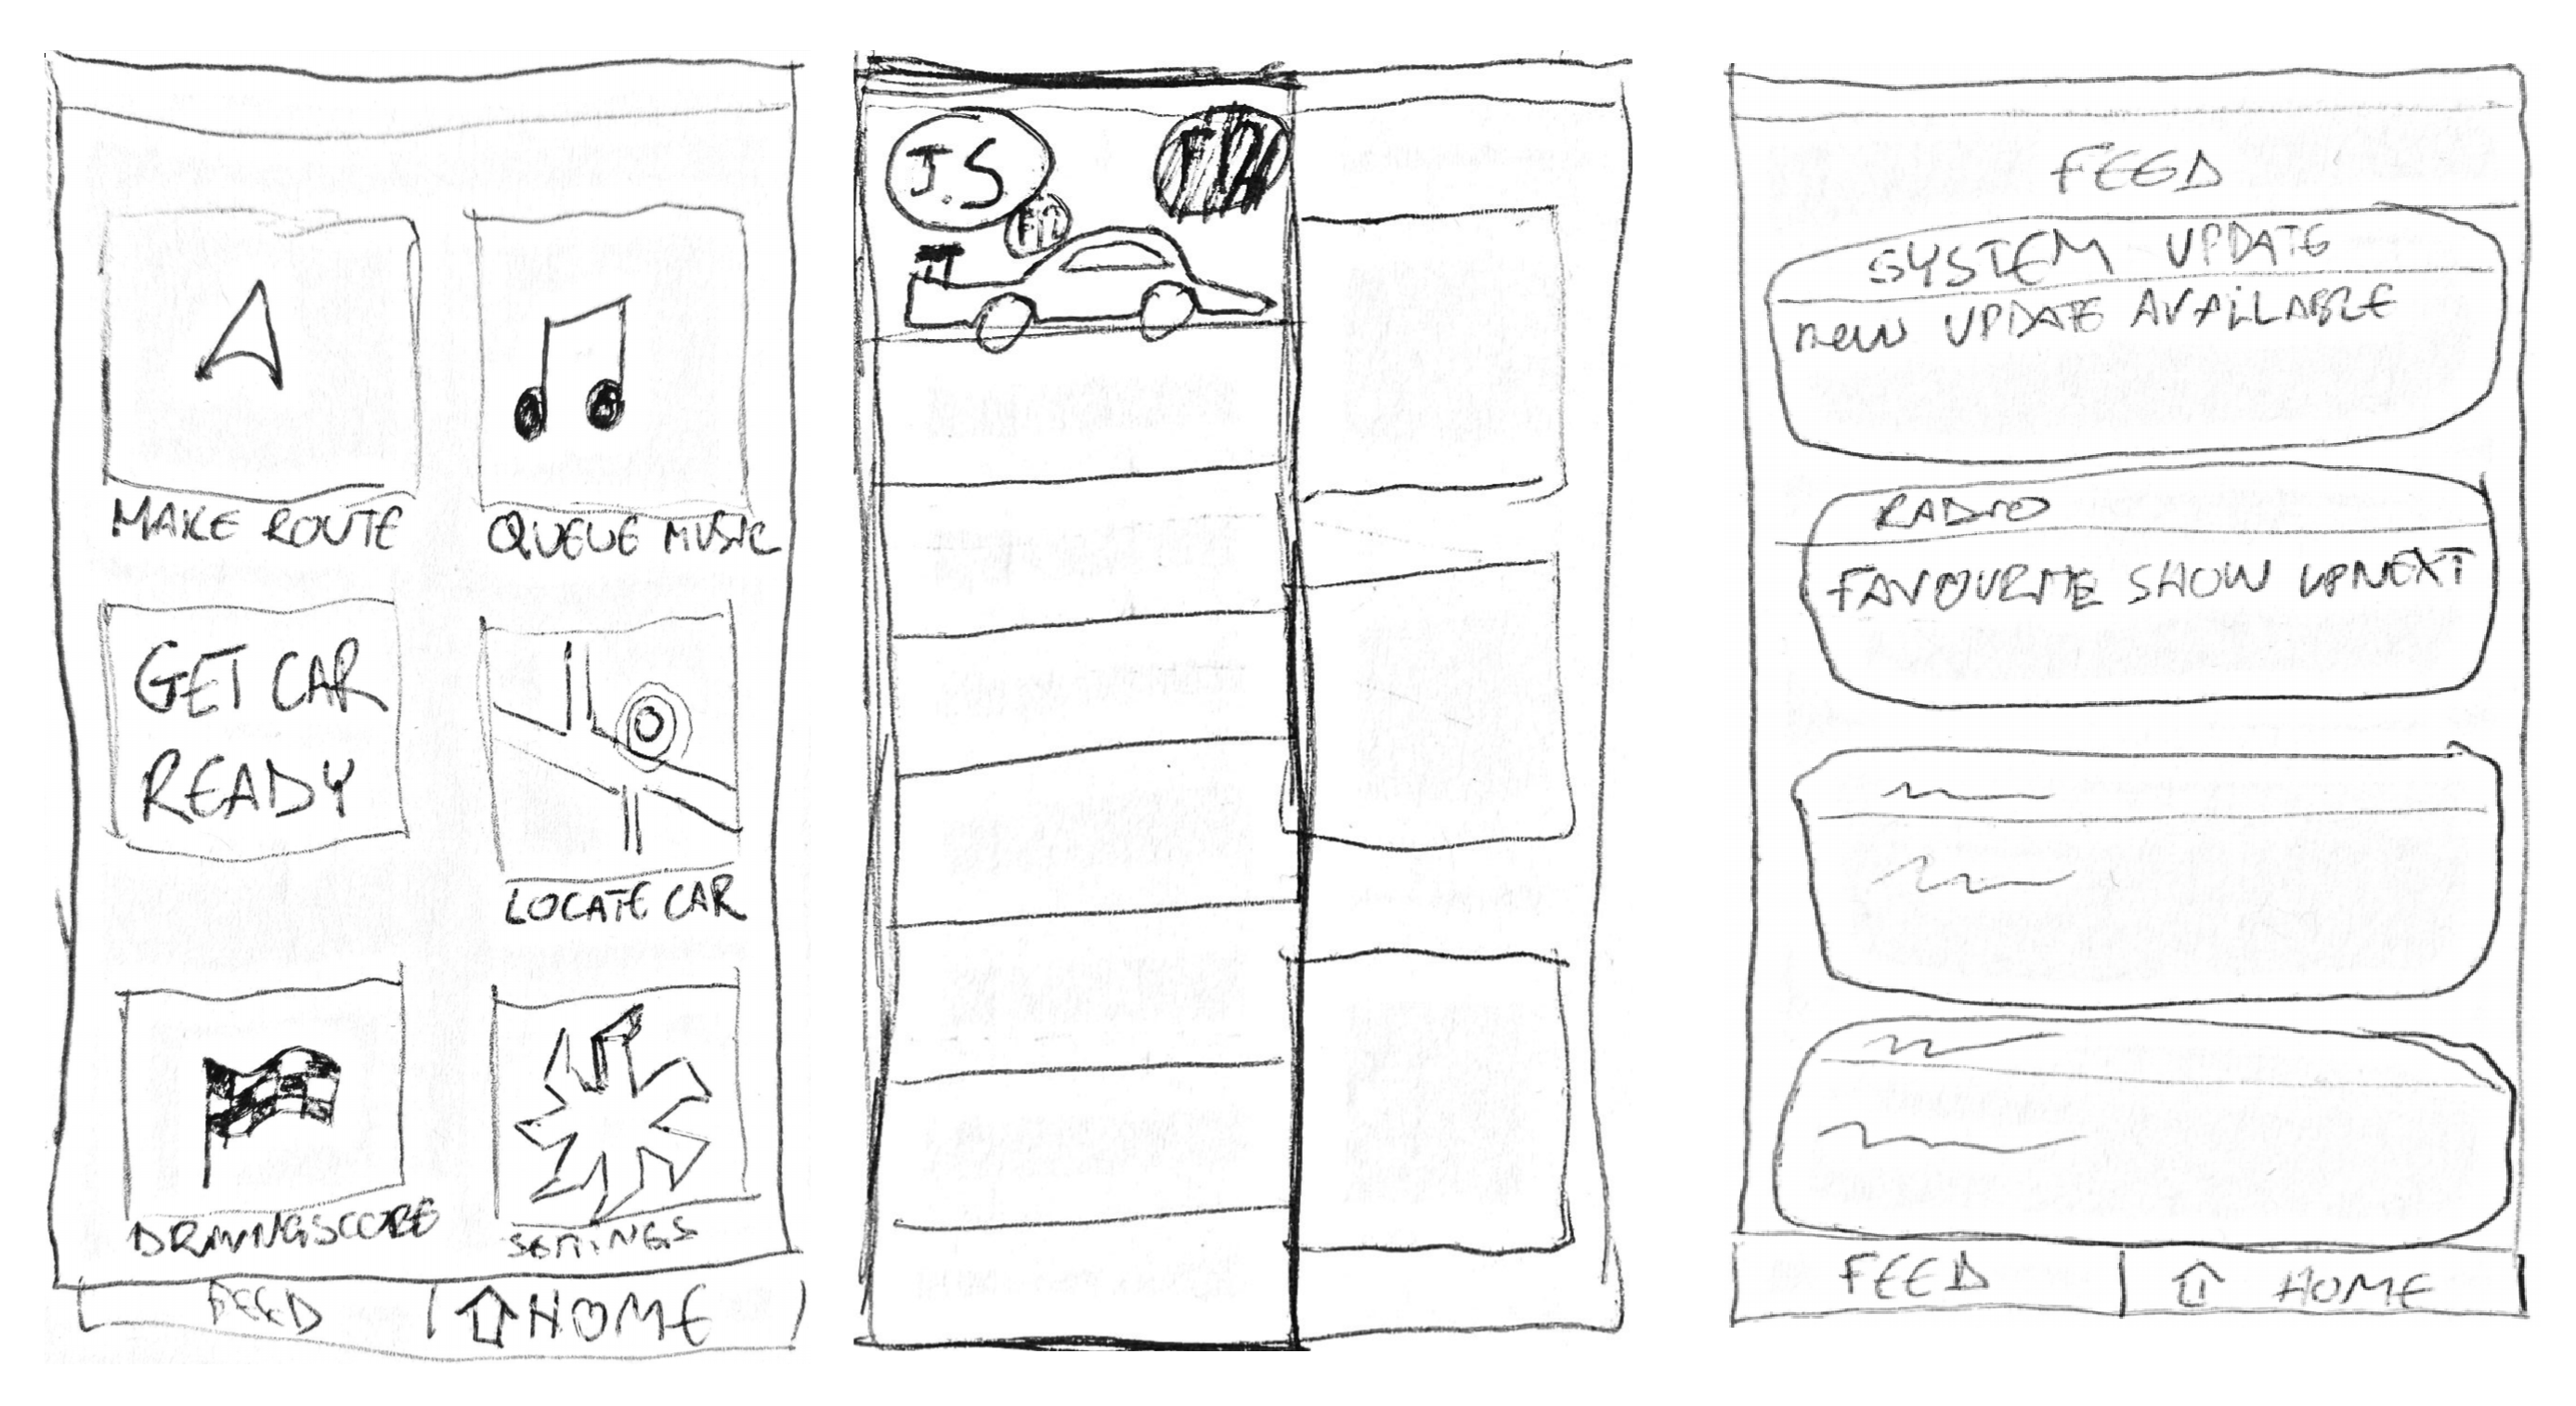 MAKE ROUTE
QUEUE MUSIC
GET CAR
READY
LOCATE CAR
DRIVINGSCORE
SETTINGS
FEED
HOME
J.S
FEED
SYSTEM UPDATE
new UPDATE AVAILABLE
RADIO
FAVOURITE SHOW UPNEXT
FEED
HOME